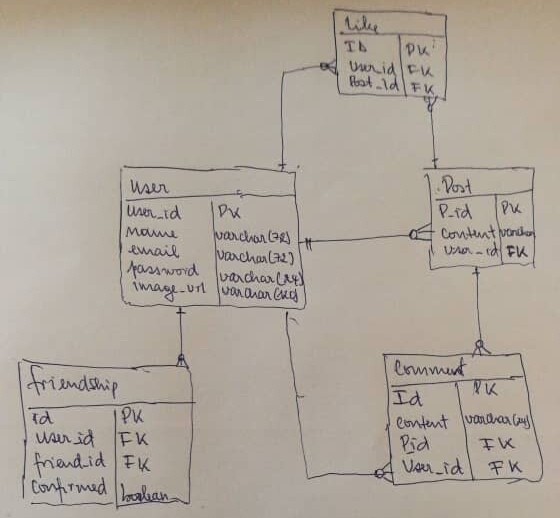 Like
ID PK
User_id FK
Post_Id FK
User
User_id PK
name varchar(72)
email varchar(72)
password
image_url
Post
P_id PK
content varchar
User_id FK
friendship
id PK
User_id FK
friend_id FK
Confirmed boolean
Comment
Id PK
content
Pid FK
User_id FK